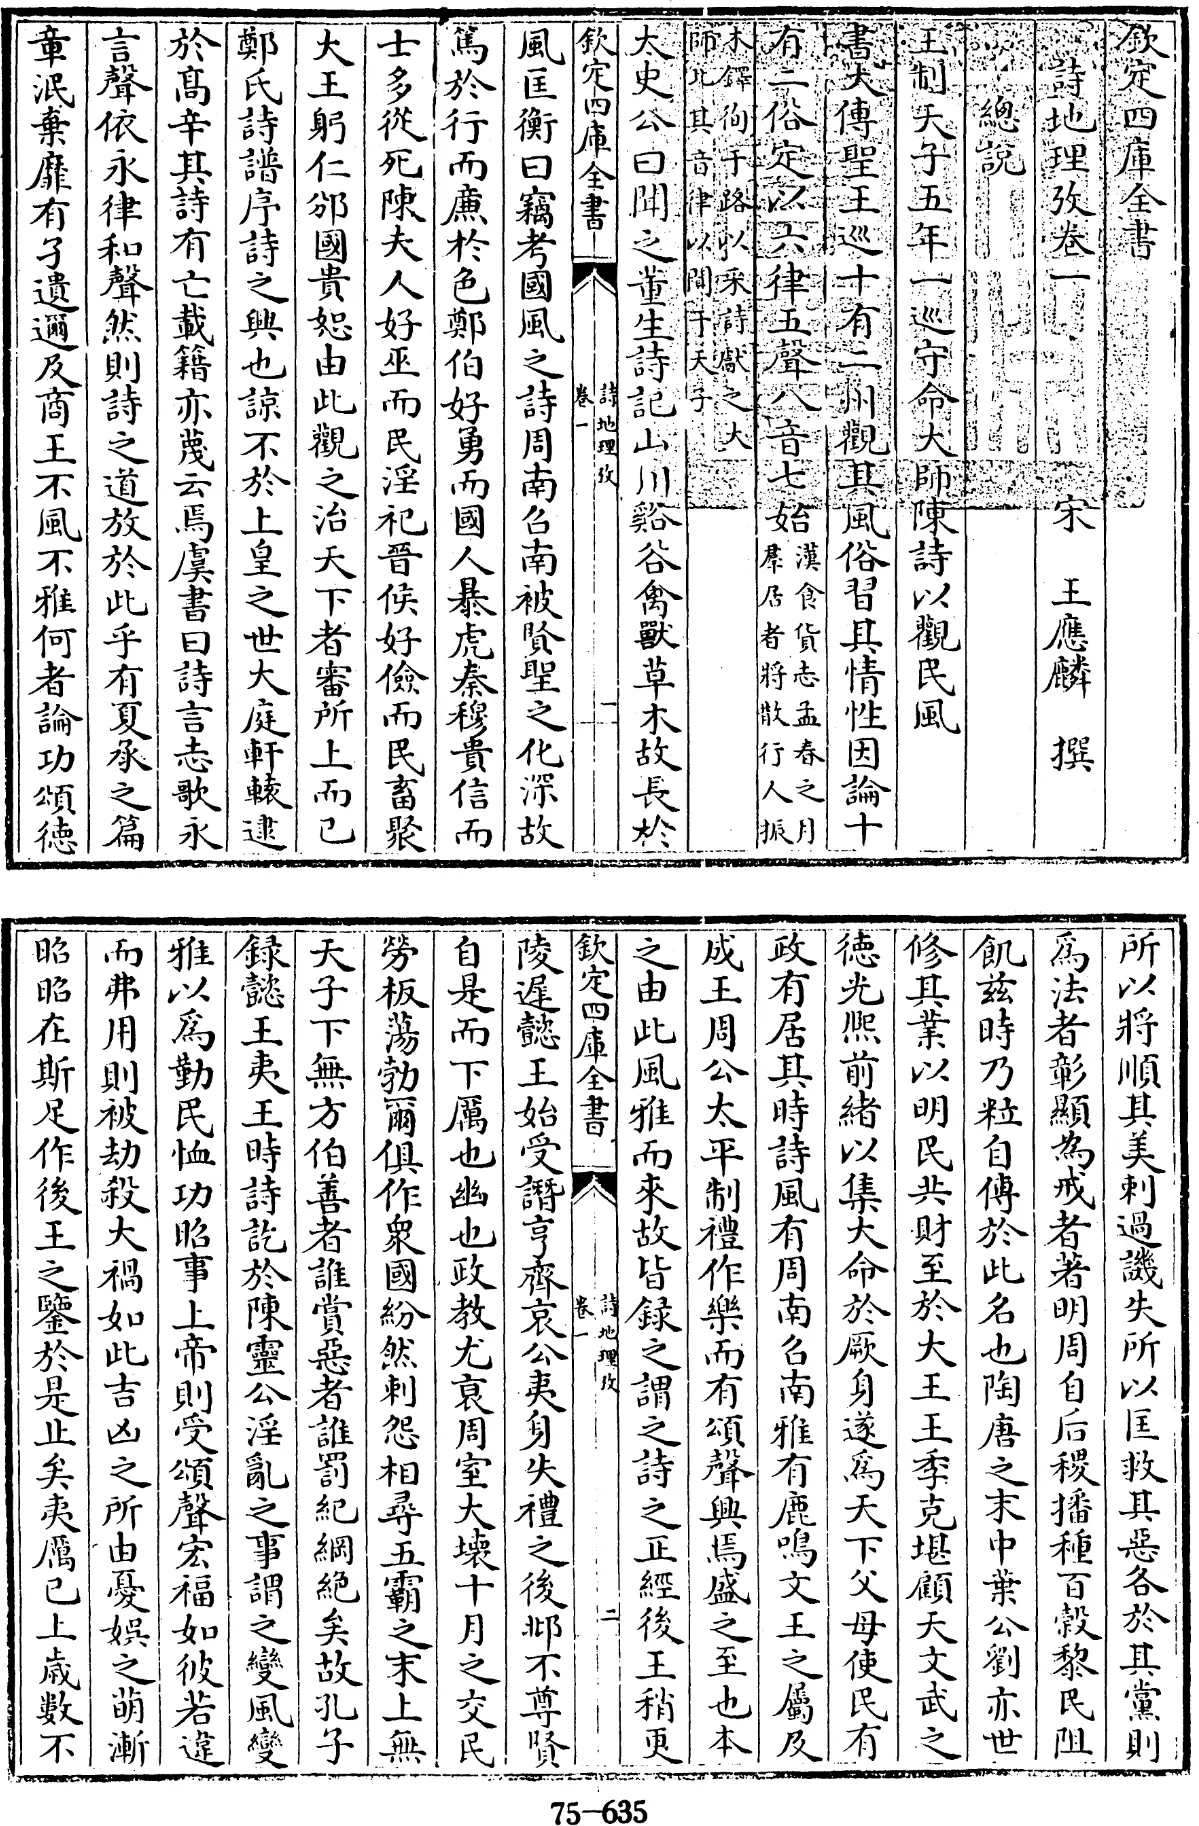 欽定四庫全書
詩地理攷卷一
宋 王應麟 撰
總說
王制天子五年一巡守命大師陳詩以觀民風
書大傳聖王巡十有二州觀其風俗習其情性因論十
有二俗定以六律五聲八音七始漢食貨志孟春之月
羣居者將散行人振
木鐸徇于路以采詩獻之大
師比其音律以聞于天子
太史公曰聞之董生詩記山川谿谷禽獸草木故長於
欽定四庫全書
詩地理攷
卷一
一
風匡衡曰竊考國風之詩周南召南被賢聖之化深故
篤於行而廉於色鄭伯好勇而國人暴虎秦穆貴信而
士多從死陳夫人好巫而民淫祀晉侯好儉而民畜聚
大王躬仁邠國貴恕由此觀之治天下者審所上而已
鄭氏詩譜序詩之興也諒不於上皇之世大庭軒轅逮
於髙辛其詩有亡載籍亦蔑云焉虞書曰詩言志歌永
言聲依永律和聲然則詩之道放於此乎有夏承之篇
章泯棄靡有孑遺邇及商王不風不雅何者論功頌德
所以將順其美刺過譏失所以匡救其惡各於其黨則
爲法者彰顯為戒者著明周自后稷播種百穀黎民阻
飢兹時乃粒自傳於此名也陶唐之末中葉公劉亦世
修其業以明民共財至於大王王季克堪顧天文武之
德光熙前緒以集大命於厥身遂爲天下父母使民有
政有居其時詩風有周南召南雅有鹿鳴文王之屬及
成王周公太平制禮作樂而有頌聲興焉盛之至也本
之由此風雅而來故皆録之謂之詩之正經後王稍更
欽定四庫全書
詩地理攷
卷一
二
陵遲懿王始受譖亨齊哀公夷身失禮之後邶不尊賢
自是而下厲也幽也政教尤衰周室大壊十月之交民
勞板蕩勃爾俱作衆國紛然刺怨相尋五霸之末上無
天子下無方伯善者誰賞惡者誰罰紀綱絶矣故孔子
録懿王夷王時詩訖於陳靈公淫亂之事謂之變風變
雅以爲勤民恤功昭事上帝則受頌聲宏福如彼若違
而弗用則被劫殺大禍如此吉凶之所由憂娯之萌漸
昭昭在斯足作後王之鑒於是止矣夷厲已上嵗數不
75-635